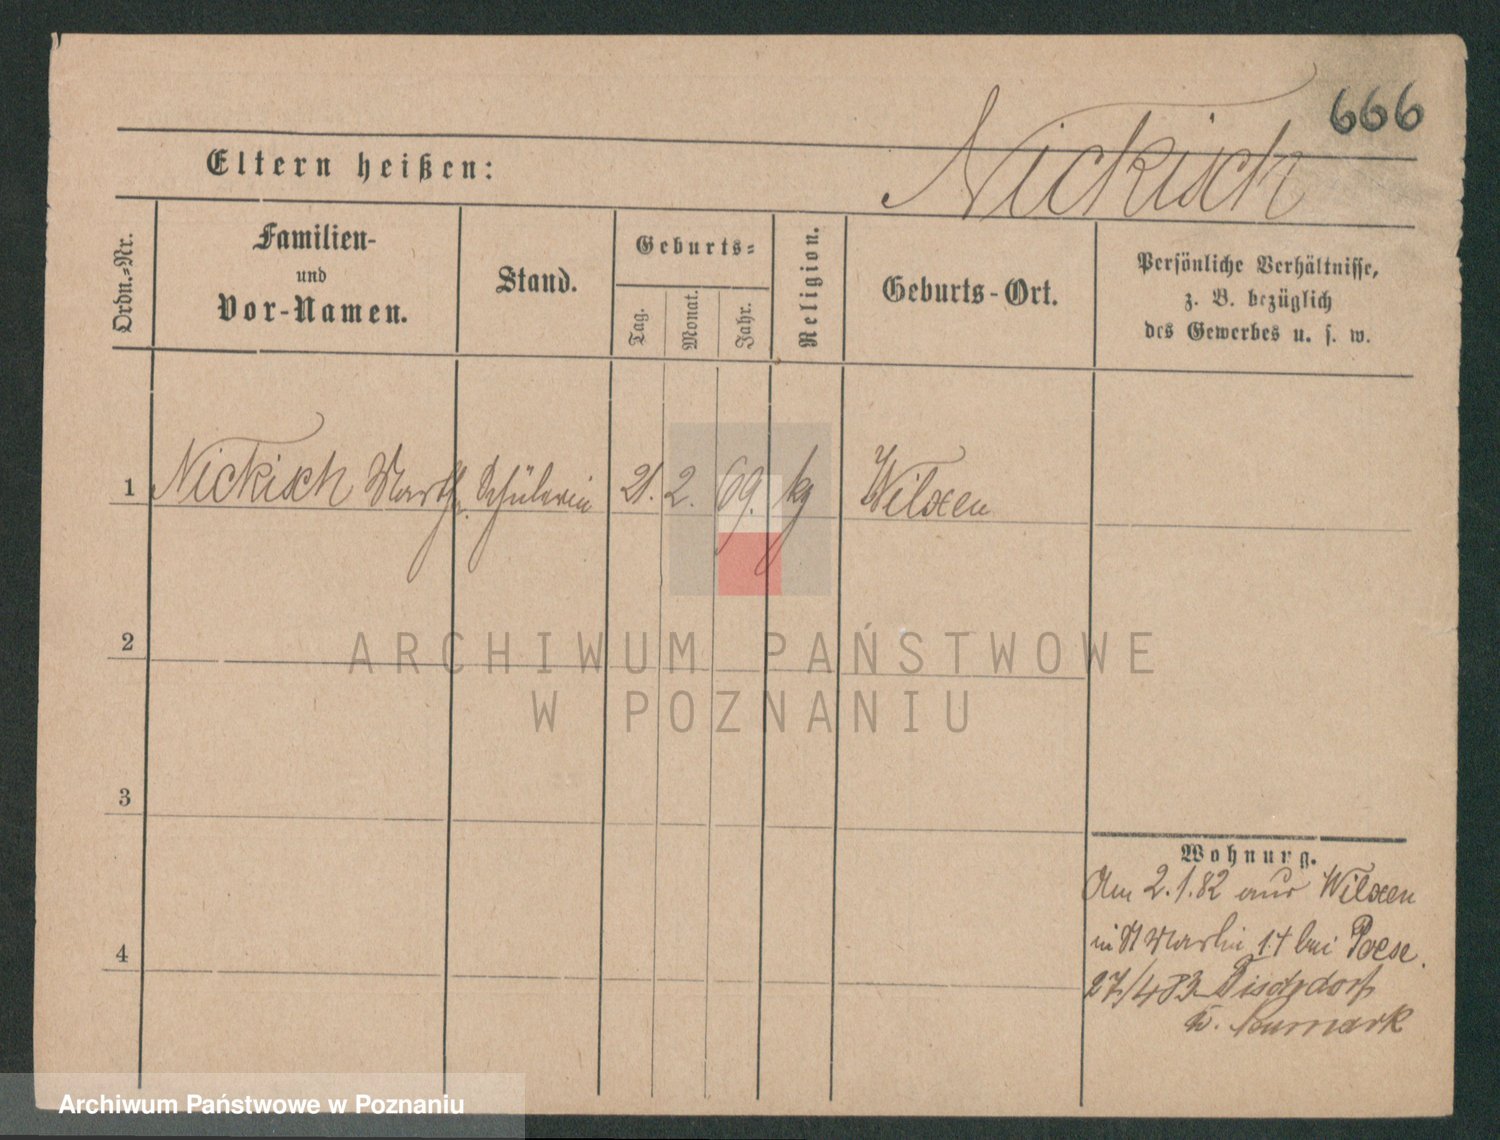 666
Nickisch
Eltern heißen:
Ordn.-Nr.
Familien-
und
Vor-Namen.
Stand.
Geburts-
Tag.
Monat.
Jahr.
Religion.
Geburts-Ort.
Persönliche Verhältnisse,
z. B. bezüglich
des Gewerbes u. s. w.
1 Nickisch Marth. Schülerin 21. 2. 69. kg Wilxen
2
ARCHIWUM PAŃSTWOWE
W POZNANIU
3
4
Wohnung.
Am 2.1.82 aus Wilxen
in St Martin 14 bei Poese.
27/4 83
Archiwum Państwowe w Poznaniu